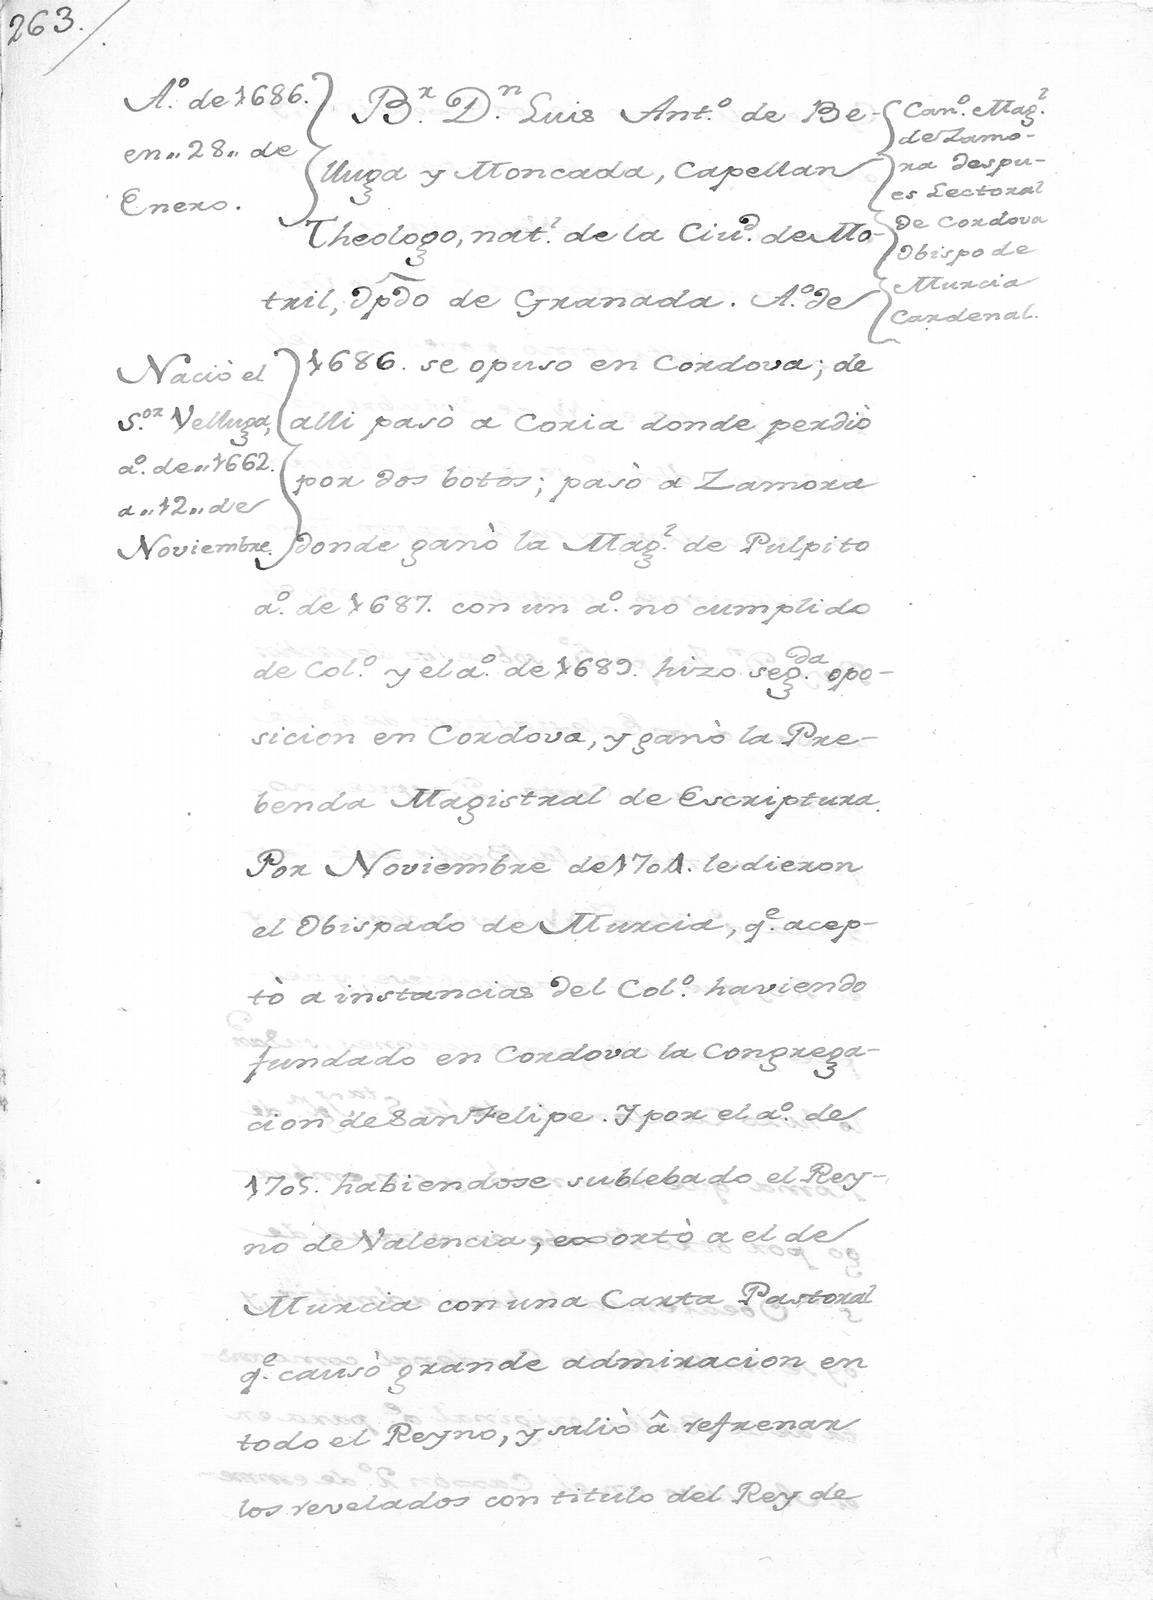 263.
A.º de 1686.
en,, 28,, de
Enero.
B.r D.n Luis Ant.º de Be-
lluga y Moncada, Capellan
Theologo, nat.l de la Ciu.d de Mo-
tril, Dpdo de Granada. A.º de
Can.º Mag.l
de Zamo-
ra despu-
es Lectoral
de Cordova
Obispo de
Murcia
Cardenal.
Naciò el
S.or Velluga,
a.º de,, 1662.
a,, 12,, de
Noviembre.
1686. se opuso en Cordova; de
alli pasò a Coria donde perdiò
por dos botos; pasò a Zamora
donde ganò la Mag.l de Pulpito
a.º de 1687. con un a.º no cumplido
de Col.º y el a.º de 1689. hizo seg.da opo-
sicion en Cordova, y ganò la Pre-
benda Magistral de Escriptura.
Por Noviembre de 1701. le dieron
el Obispado de Murcia, q.e acep-
tò a instancias del Col.º haviendo
fundado en Cordova la Congrega-
cion de San Felipe. Y por el a.º de
1705. habiendose sublebado el Rey-
no de Valencia, exortò a el de
Murcia con una Carta Pastoral
q.e causò grande admiracion en
todo el Reyno, y saliò â refrenar
los revelados con titulo del Rey de